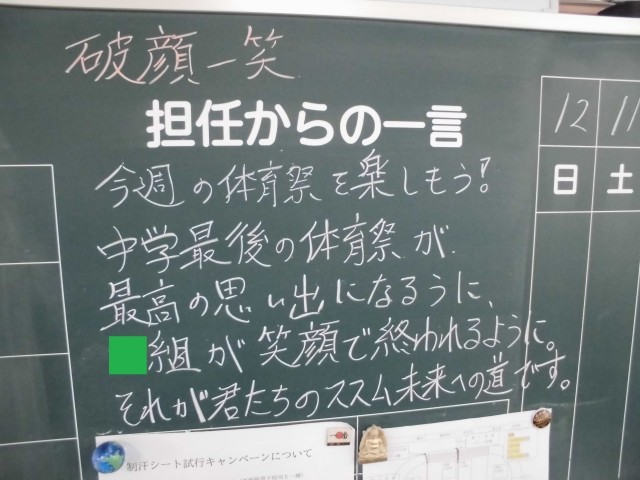 破顔一笑
担任からの一言
今週の体育祭を楽しもう!
中学最後の体育祭が
最高の思い出になるうに、
組が笑顔で終われるように。
それが君たちのススム未来への道です。
12 11
日 土
制汗シート試行キャンペーンについて